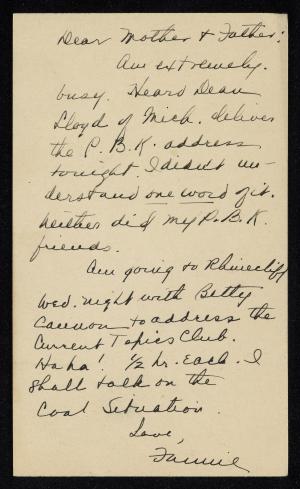 Dear Mother & Father:
Am extremely
busy. Heard Dean
Lloyd of Mich. deliver
the P. B. K. address
tonight. I didn't un-
derstand one word of it.
neither did my P. B. K.
friends.
Am going to Rhinecliff
Wed. night with Betty
Cannon to address the
Current Topics Club.
Haha! 1/2 hr. each. I
shall talk on the
Coal Situation.
Love,
Fannie